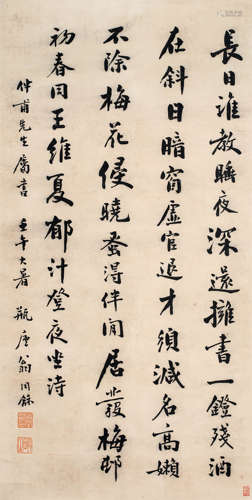 長日誰教睡夜深還擁書一鐙殘酒
在斜日暗窗虛官退才須減名高嬾
不除梅花侵曉蚤得伴閒居發梅邨
初春同王維夏郁計登夜坐詩
仲甫先生屬書 壬午大暑 瓶廬翁同龢